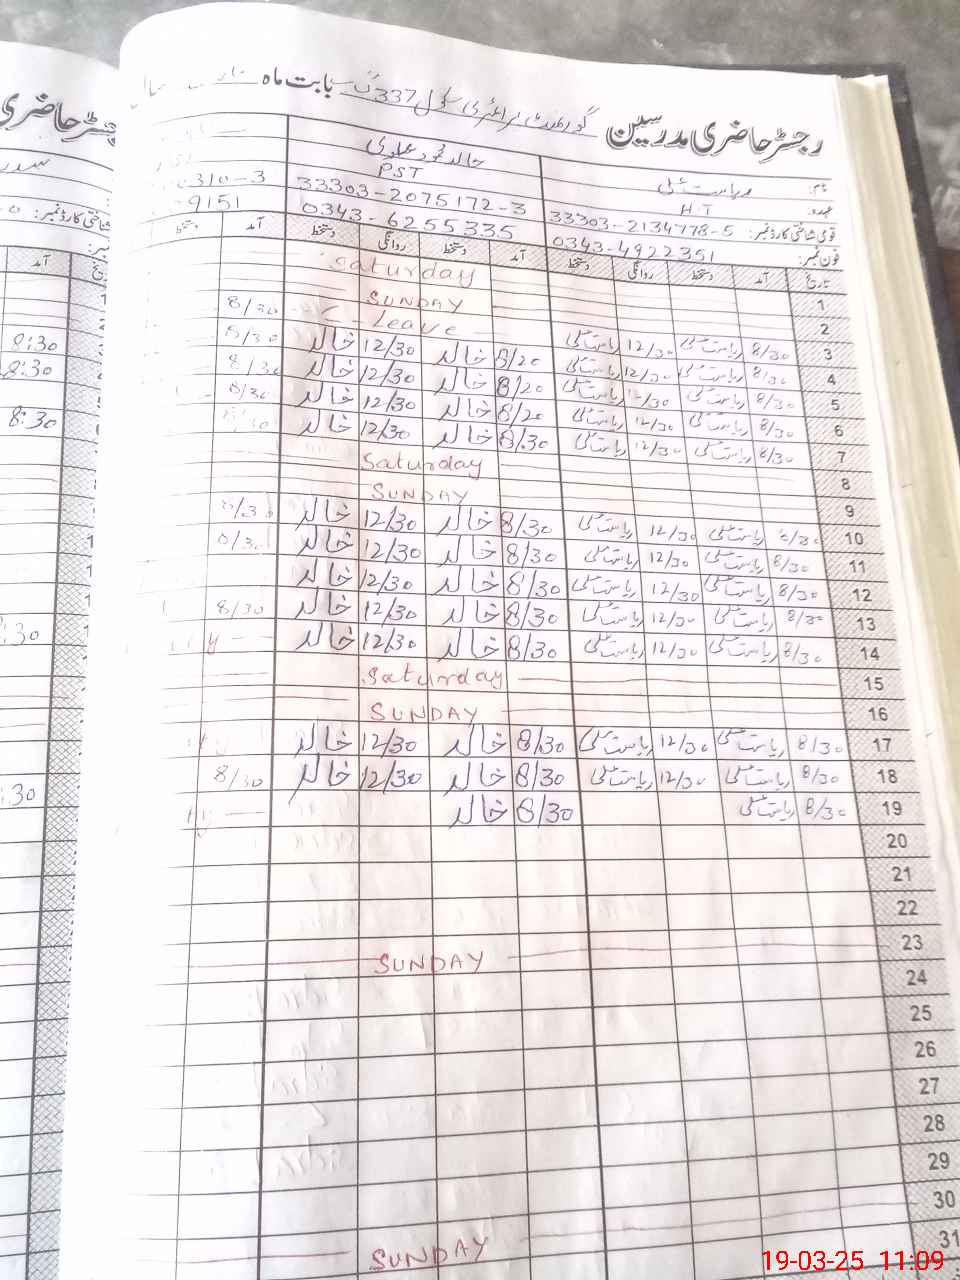 رجسٹر حاضری مدرسین گورنمنٹ پرائمری سکول 337 گ ب بابت ماہ
نام: ریاست علی خالد محمود
عہدہ: H.T PST
قومی شناختی کارڈ نمبر: 33303-2134778-5 33303-2075172-3 310-3
فون نمبر: 0343-4922351 0343-6255335 9151
تاریخ آمد دستخط روانگی دستخط آمد دستخط روانگی دستخط آمد دستخط
1 Saturday
2 SUNDAY
3 8/30 ریاست علی 12/30 ریاست علی Leave 8/30
4 8/30 ریاست علی 12/30 ریاست علی 8/20 خالد 12/30 خالد 8/30
5 8/30 ریاست علی 12/30 ریاست علی 8/20 خالد 12/30 خالد 8/30
6 8/30 ریاست علی 12/30 ریاست علی 8/20 خالد 12/30 خالد 8/30
7 8/30 ریاست علی 12/30 ریاست علی 8/30 خالد 12/30 خالد
8 Saturday
9 SUNDAY
10 8/30 ریاست علی 12/30 ریاست علی 8/30 خالد 12/30 خالد 8/30
11 8/30 ریاست علی 12/30 ریاست علی 8/30 خالد 12/30 خالد 8/30
12 8/30 ریاست علی 12/30 ریاست علی 8/30 خالد 12/30 خالد
13 8/30 ریاست علی 12/30 ریاست علی 8/30 خالد 12/30 خالد 8/30
14 8/30 ریاست علی 12/30 ریاست علی 8/30 خالد 12/30 خالد
15 Saturday
16 SUNDAY
17 8/30 ریاست علی 12/30 ریاست علی 8/30 خالد 12/30 خالد
18 8/30 ریاست علی 12/30 ریاست علی 8/30 خالد 12/30 خالد 8/30
19 8/30 ریاست علی 8/30 خالد
20
21
22
23 SUNDAY
24
25
26
27
28
29
30 SUNDAY
31
رجسٹر حاضری
شناختی کارڈ نمبر:
آمد
8:30
8:30
8:30
:30
:30
19-03-25 11:09